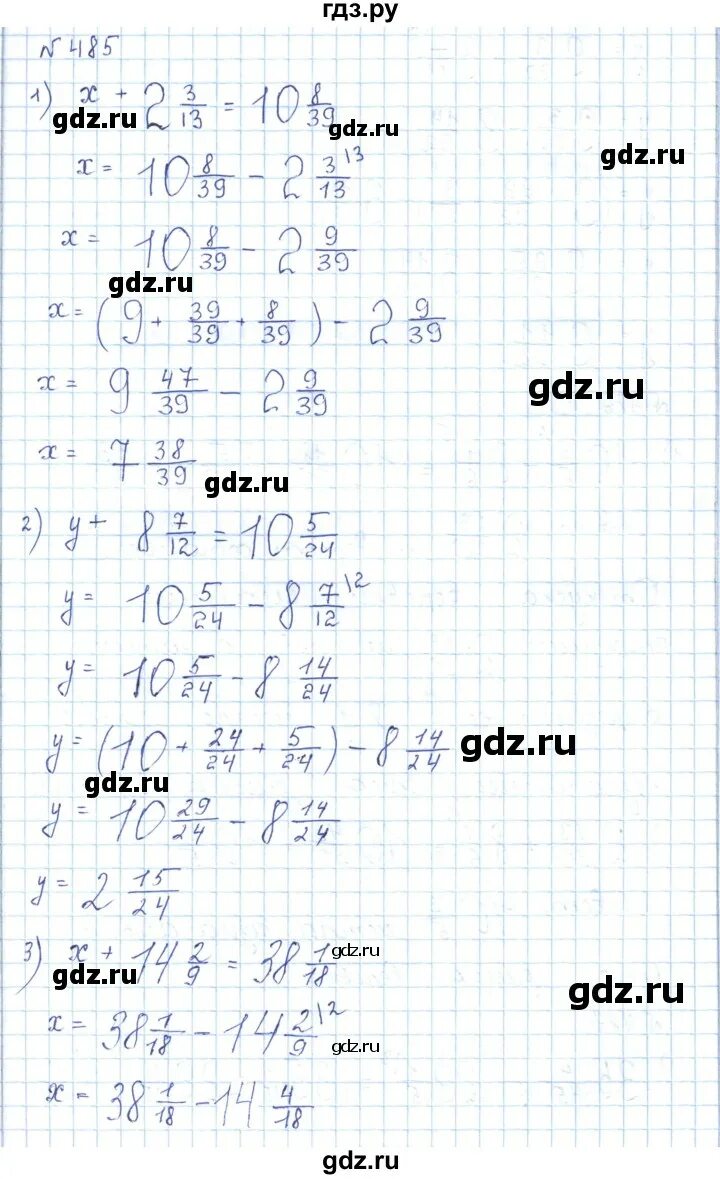 гдз.ру
№ 485
1) x + 2 3/13 = 10 8/39
gdz.ru
gdz.ru
gdz.ru
x = 10 8/39 - 2 3/13 \3
x = 10 8/39 - 2 9/39
gdz.ru
x = (9 + 39/39 + 8/39) - 2 9/39
x = 9 47/39 - 2 9/39
gdz.ru
x = 7 38/39
gdz.ru
2) y + 8 7/12 = 10 5/24
y = 10 5/24 - 8 7/12 \2
y = 10 5/24 - 8 14/24
y = (10 + 24/24 + 5/24) - 8 14/24
gdz.ru
gdz.ru
y = 10 29/24 - 8 14/24
y = 2 15/24
3) x + 14 2/9 = 38 1/18
gdz.ru
gdz.ru
gdz.ru
x = 38 1/18 - 14 2/9 \2
gdz.ru
x = 38 1/18 - 14 4/18
gdz.ru